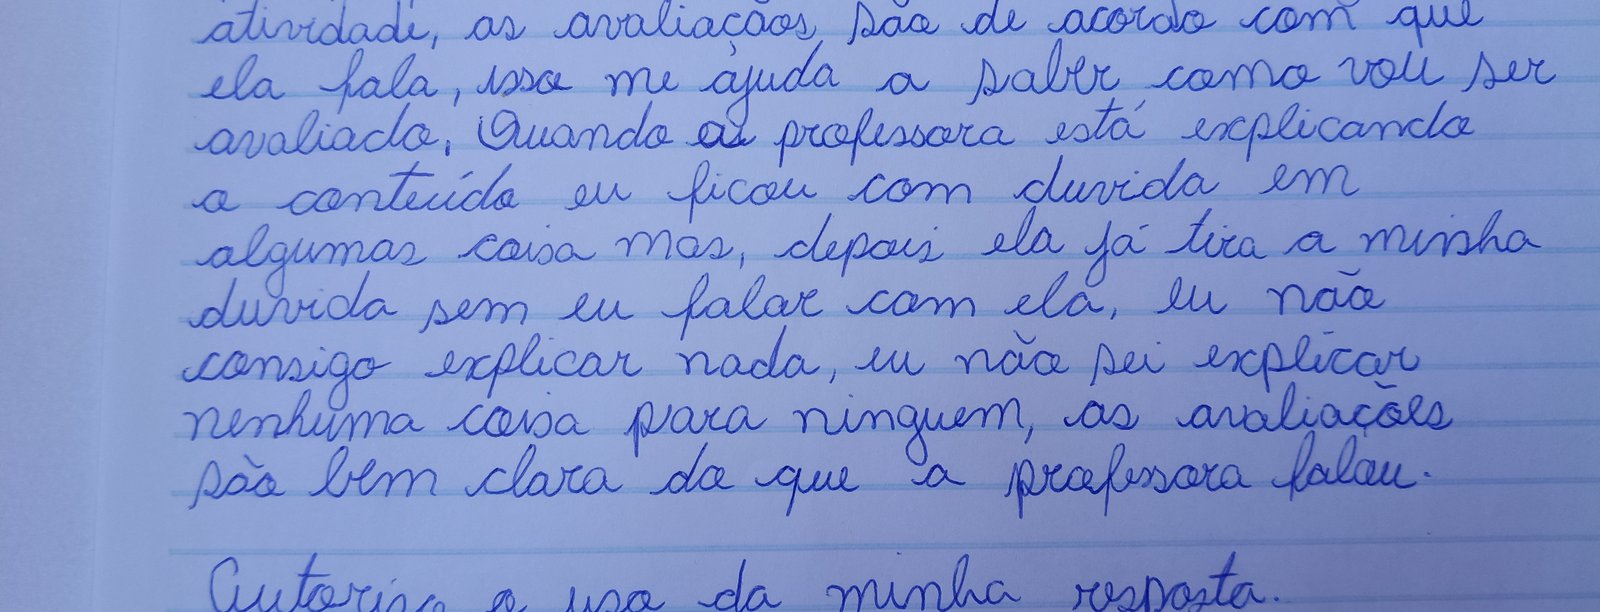 atividade, as avaliaçãos são de acordo com que
ela fala, isso me ajuda a saber como vou ser
avaliado. Quando a professora está explicando
o conteúdo eu ficou com duvida em
algumas coisa mas, depois ela já tira a minha
duvida sem eu falar com ela, eu não
consigo explicar nada, eu não sei explicar
nenhuma coisa para ninguem, as avaliações
são bem clara do que a professora falou.
Autoriso o uso da minha resposta.